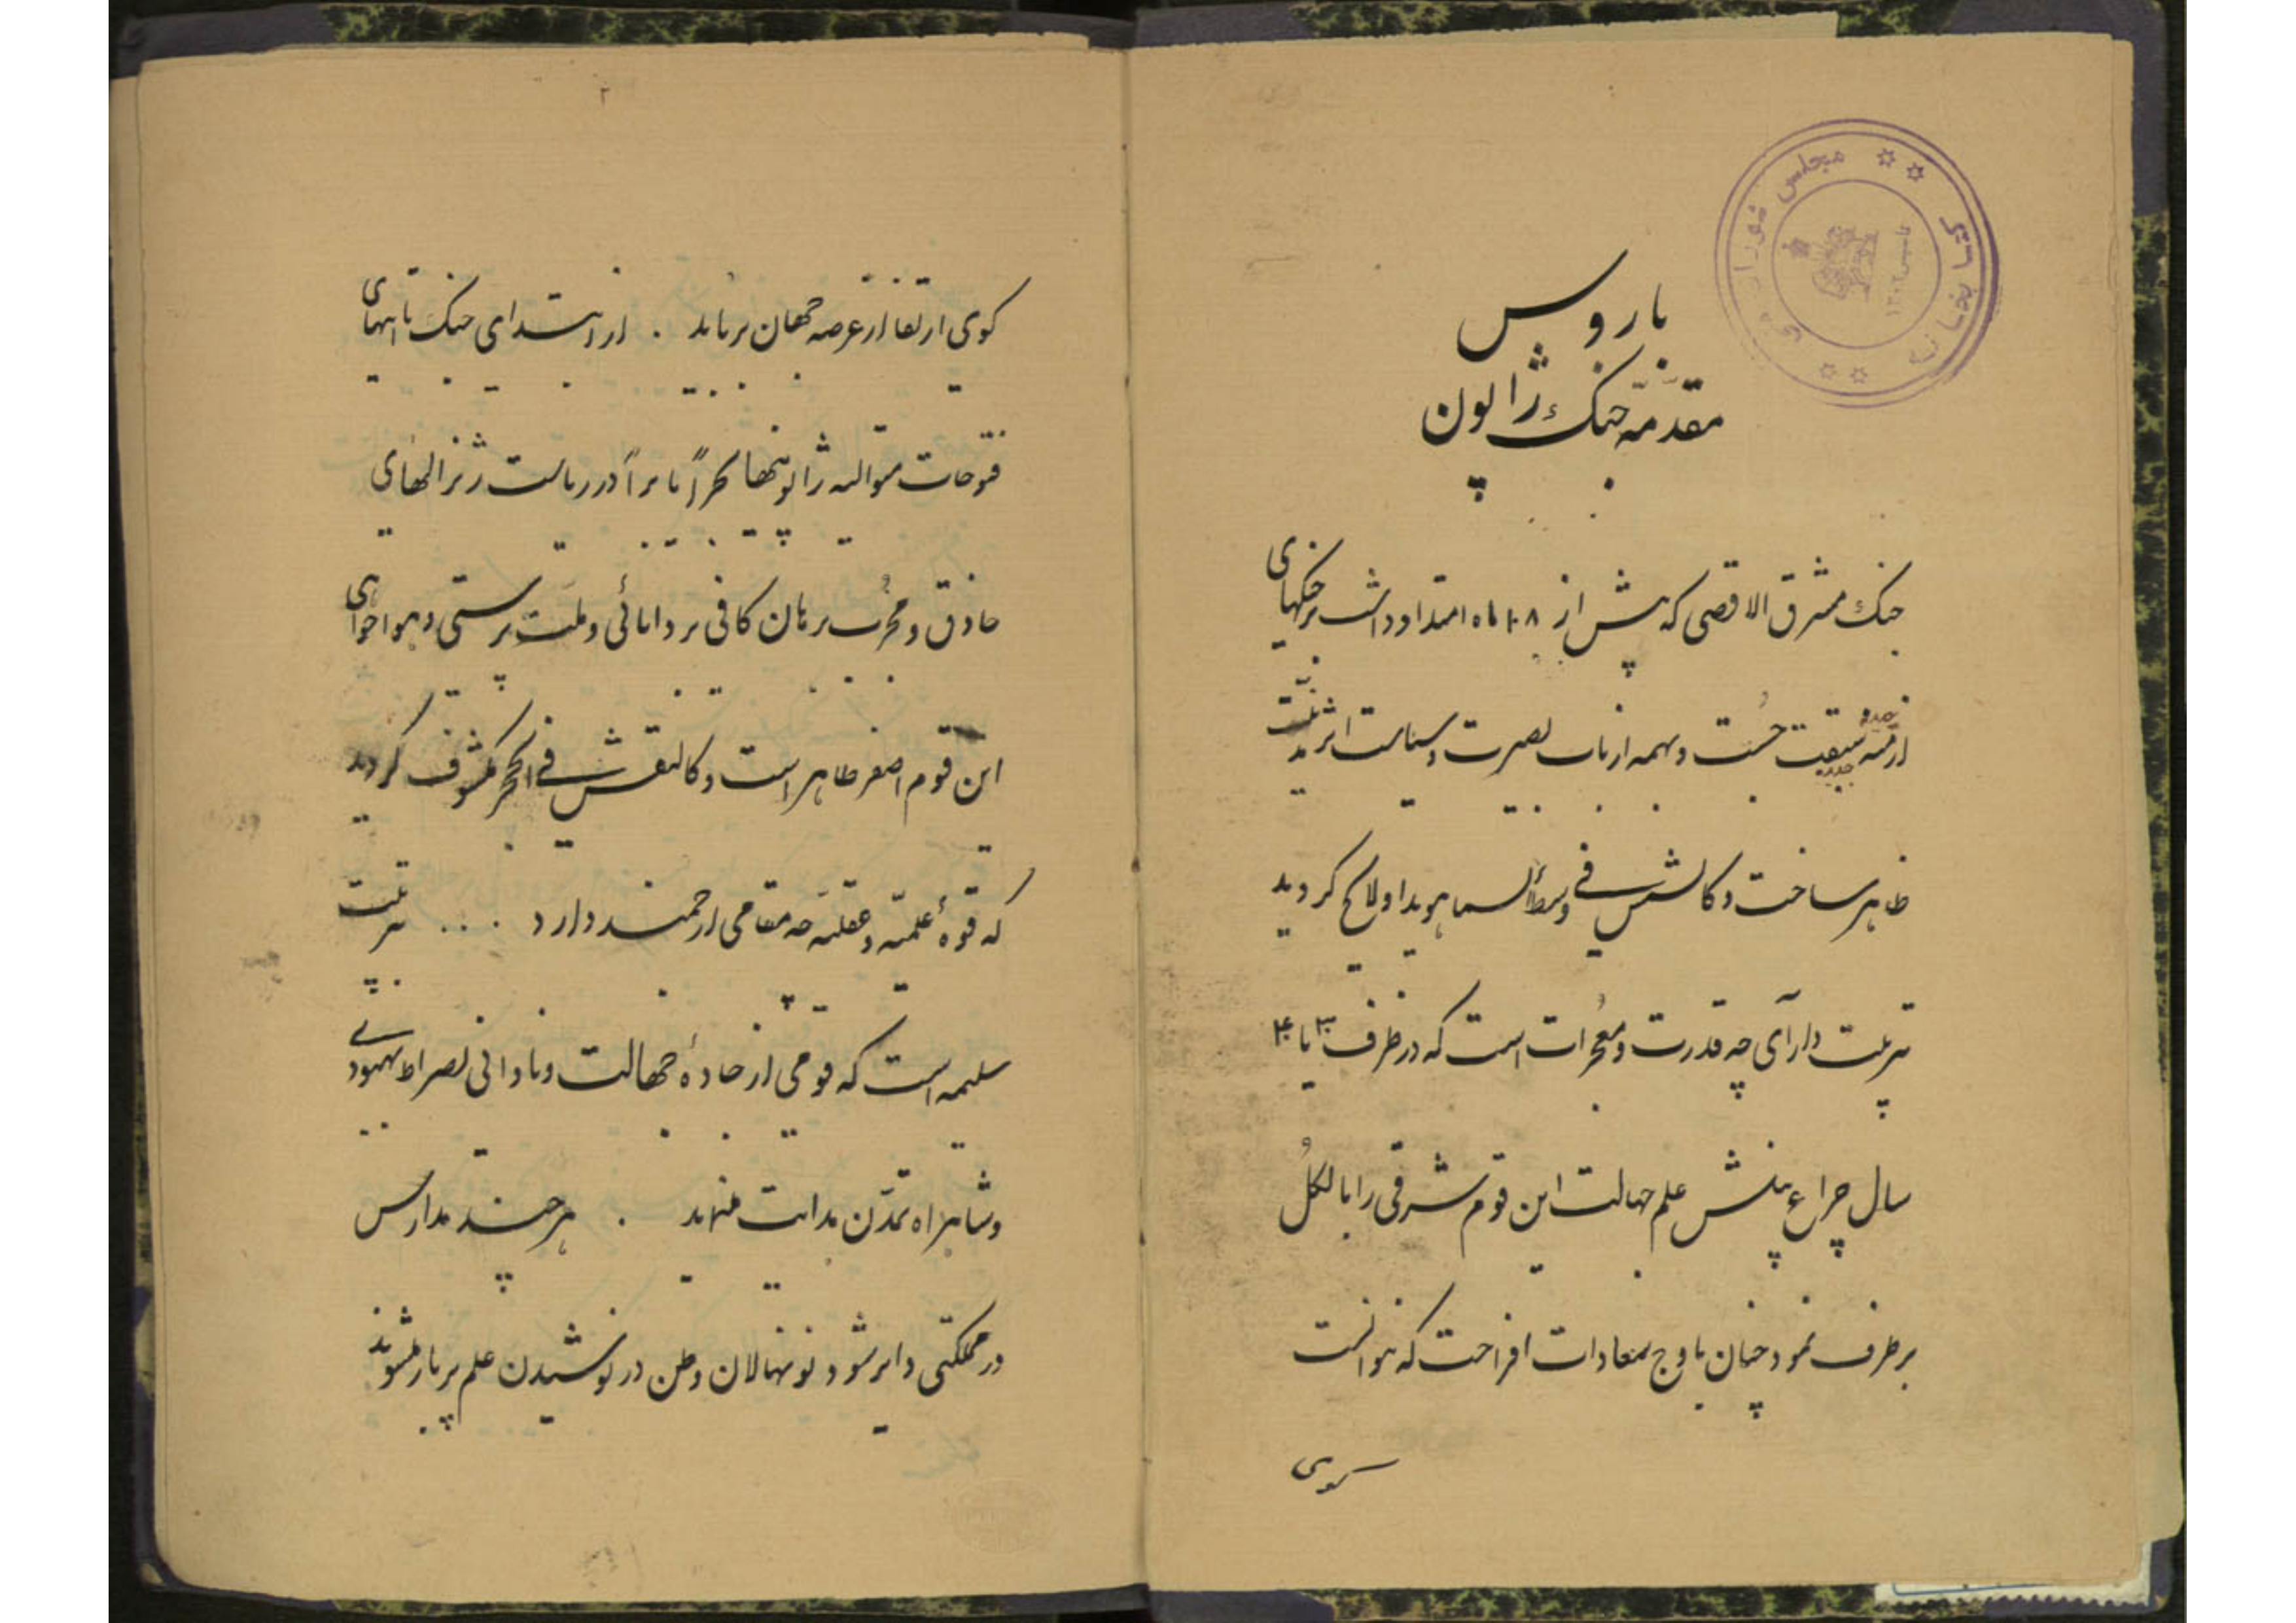 کتابخانه مجلس شورای ملی
تاسیس ۱۳۰۲
مقدمه جنگ ژاپون
با روس
جنگ مشرق الاقصی که بیش از ۱۸ ماه امتداد داشت بر جنگهای
ازمنه جدیده سبقت جُست و بهمه ارباب بصیرت و سیاست اثر تربیت
ظاهر ساخت و کالشمس فی وسط السما هویدا و لایح گردید
تربیت دارای چه قدرت و معجزات است که در ظرف ۳۰ یا ۴۰
سال چراغ بینش علم جهالت این قوم شرقی را بالکل
برطرف نمود چنان باوج سعادات افراخت که توانست
گوی
۲
گوی ارتقا از عرصه جهان برباید . از ابتدای جنگ تا انتهای
فتوحات متوالیه ژاپونیها بحراً یا براً در ریاست ژنرالهای
حاذق و مجرب برهان کافی بر دانائی و ملت پرستی و هواخواهی
این قوم اصفر ظاهر است و کالنقش فی الحجر مکشوف گردید
که قوهٔ علمیّه و عقلیّه چه مقامی ارجمند دارد .... تربیت
سلیمه است که قومی از جادهٔ جهالت و نادانی بصراط بهبودی
و شاهراه تمدّن هدایت مینماید . هر چند مدارس
در مملکتی دایر شود و نونهالان وطن در نوشیدن علم پر بار میشوند